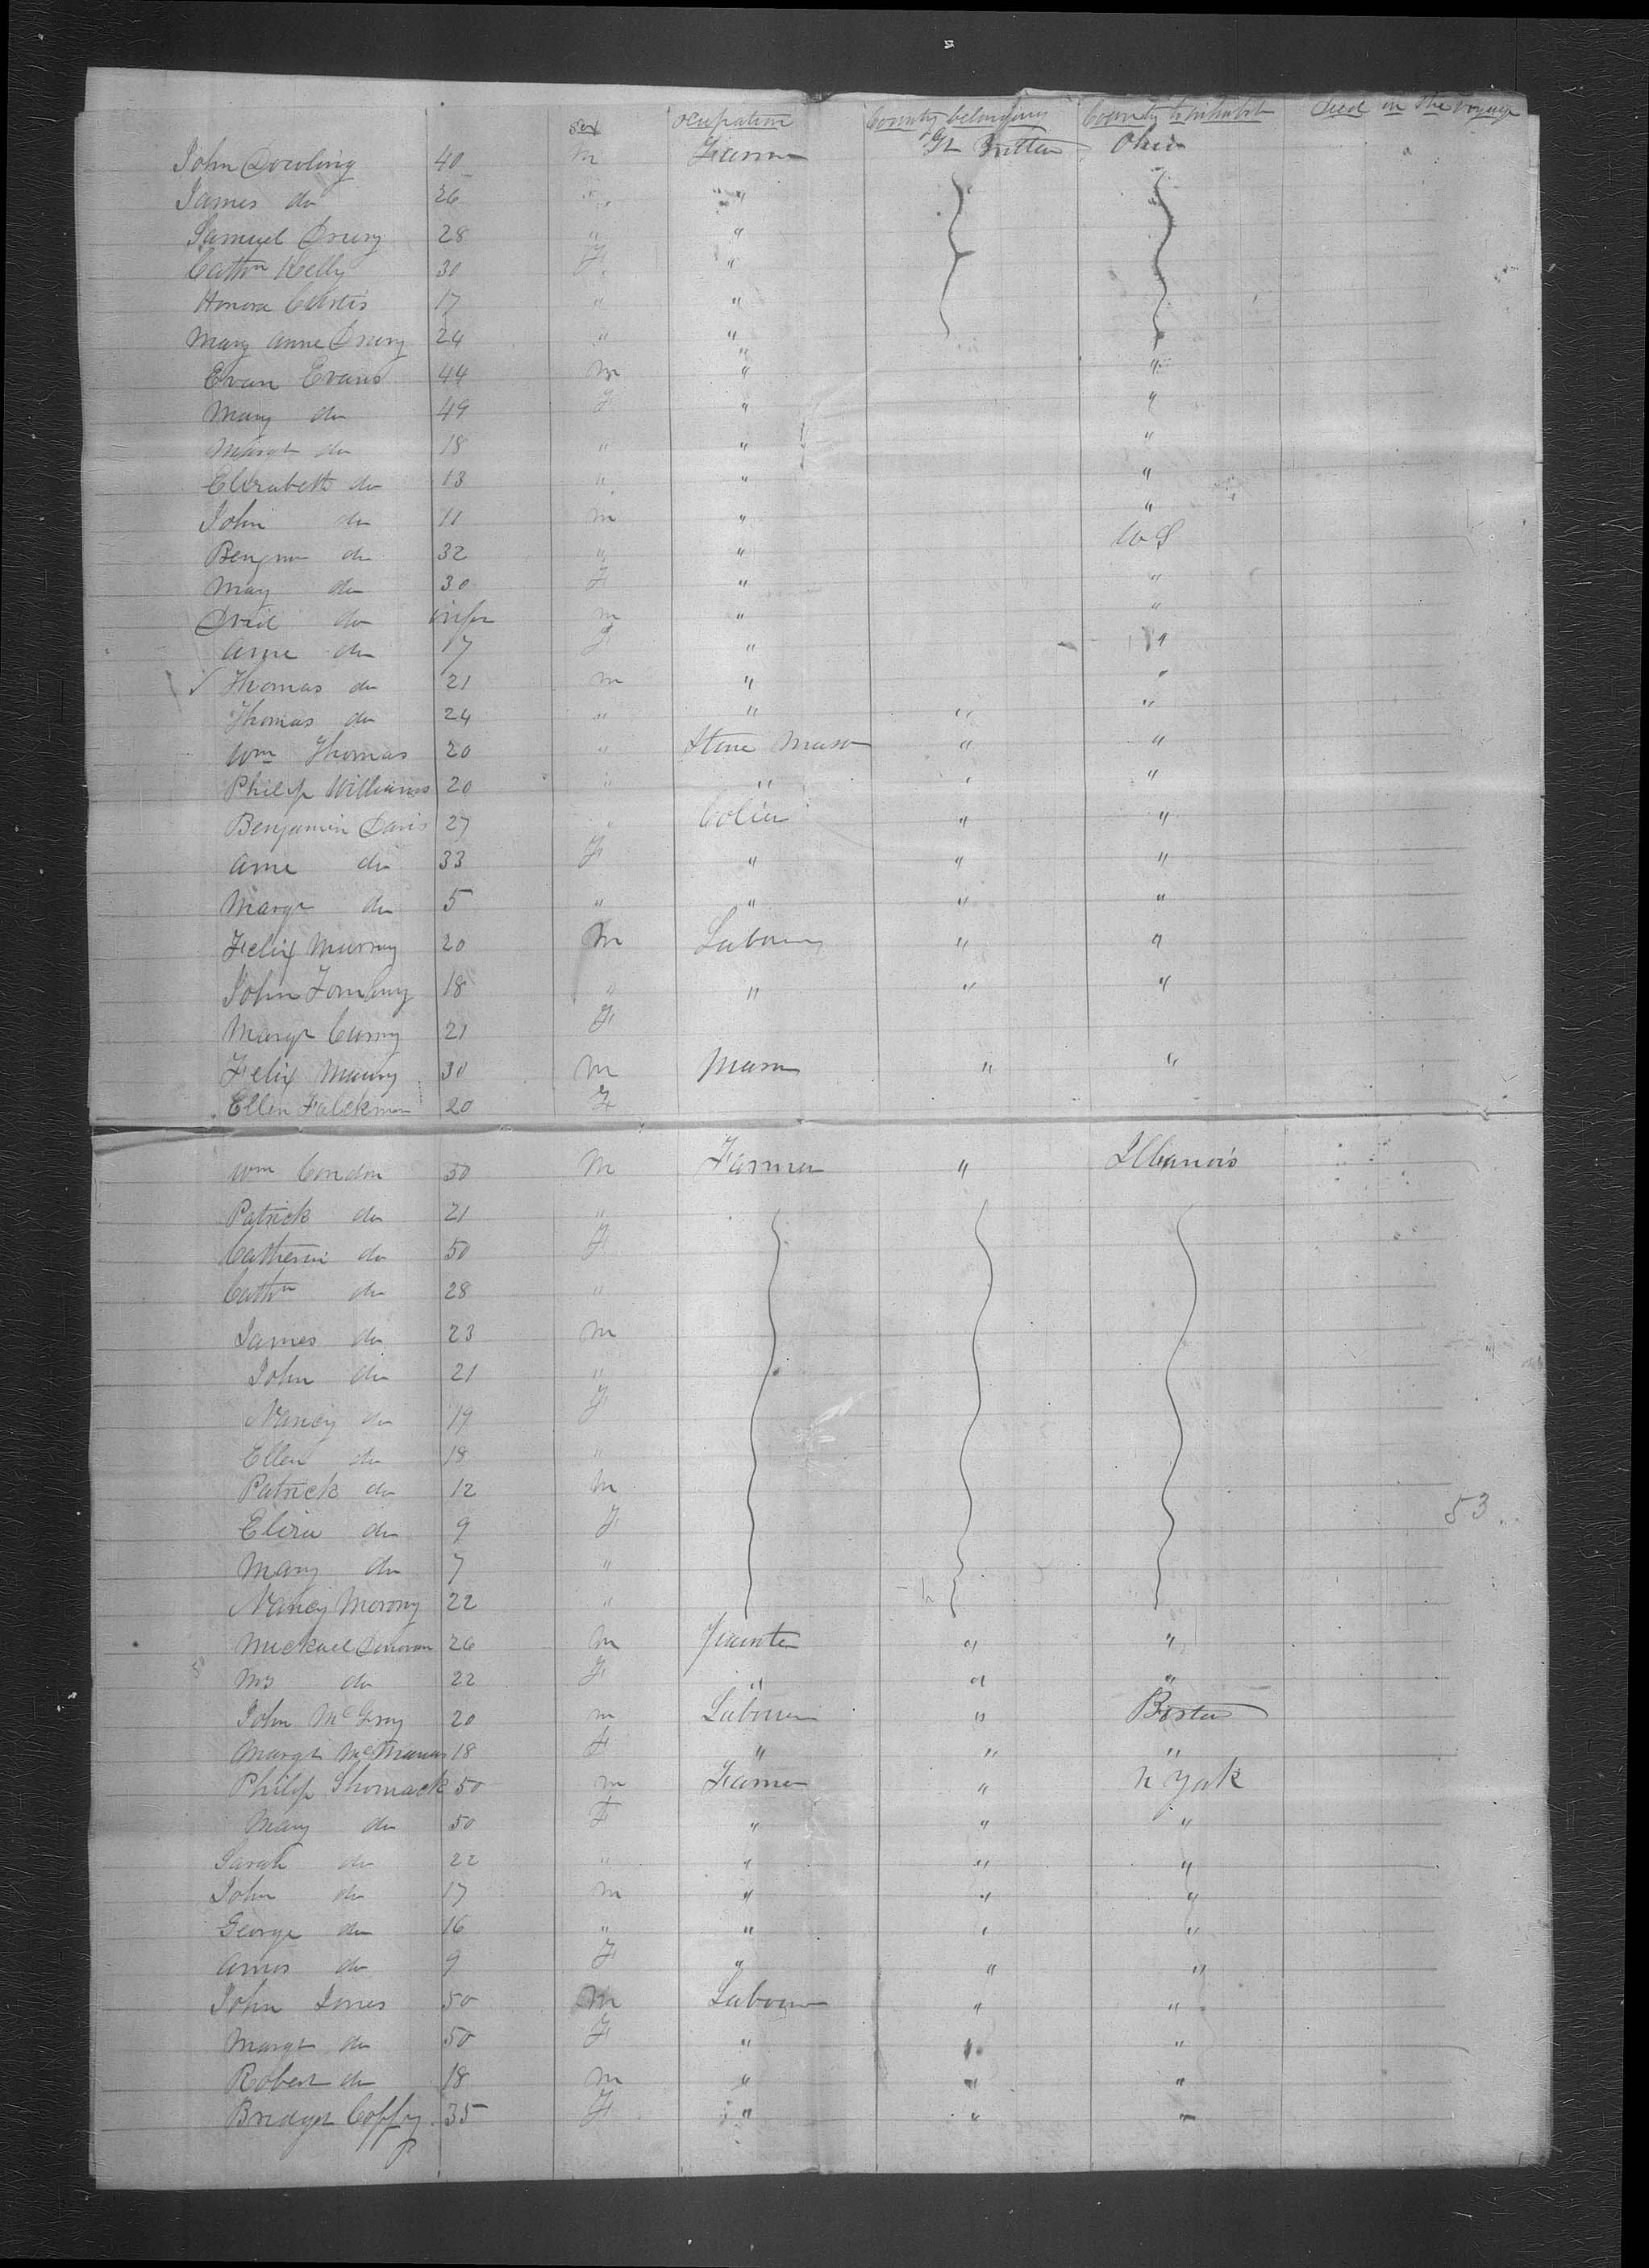 Sex ocupation County belonging County to inhabit Died on the voyage
John Dowling 40 m Farmer Gt Britten Ohio
James do 26 " "
Samuel Drury 28 " "
Cathn Kelly 30 F "
Honora Curtis 17 " "
Mary Anne Drury 24 " "
Evan Evans 44 m " "
Mary do 49 F " "
Margt do 18 " " "
Elizabeth do 13 " " "
John do 11 m " "
Benjmn do 32 " " W S
May do 30 F " "
do infan m " "
Anne do 17 F " "
Thomas do 21 m " "
Thomas do 24 " " " "
Wm Thomas 20 " Stone Mason " "
Philip Williams 20 " " " "
Benjamin Davis 27 " Colier " "
Anne do 33 F " " "
Margt do 5 " " " "
Felix Murray 20 m Labourer " "
John 18 " " " "
Margt Curry 21 F
Felix 30 m Mason " "
Ellen 20 F
Wm Condon 50 m Farmer " Illanois
Patrick do 21 "
Catherine do 50 F
Cathn do 28 "
James do 23 m
John do 21 "
Nancy do 19 F
Ellen do 18 "
Patrick do 12 m
Eliza do 9 F 53
Mary do 7 "
Nancy Morony 22 "
Mickael Donovan 26 m " "
Mrs do 22 F " " "
John McGray 20 m Labourer " Boston
Margt McManus 18 F " " "
Philip Shomack 50 m Farmer " N York
Mary do 50 F " " "
Sarah do 22 " " " "
John do 17 m " " "
George do 16 " " " "
do 9 F " " "
John Jones 50 m Labourer " "
Margt do 50 F " " "
Robert do 18 m " " "
Bridget Coffy 35 F " " "